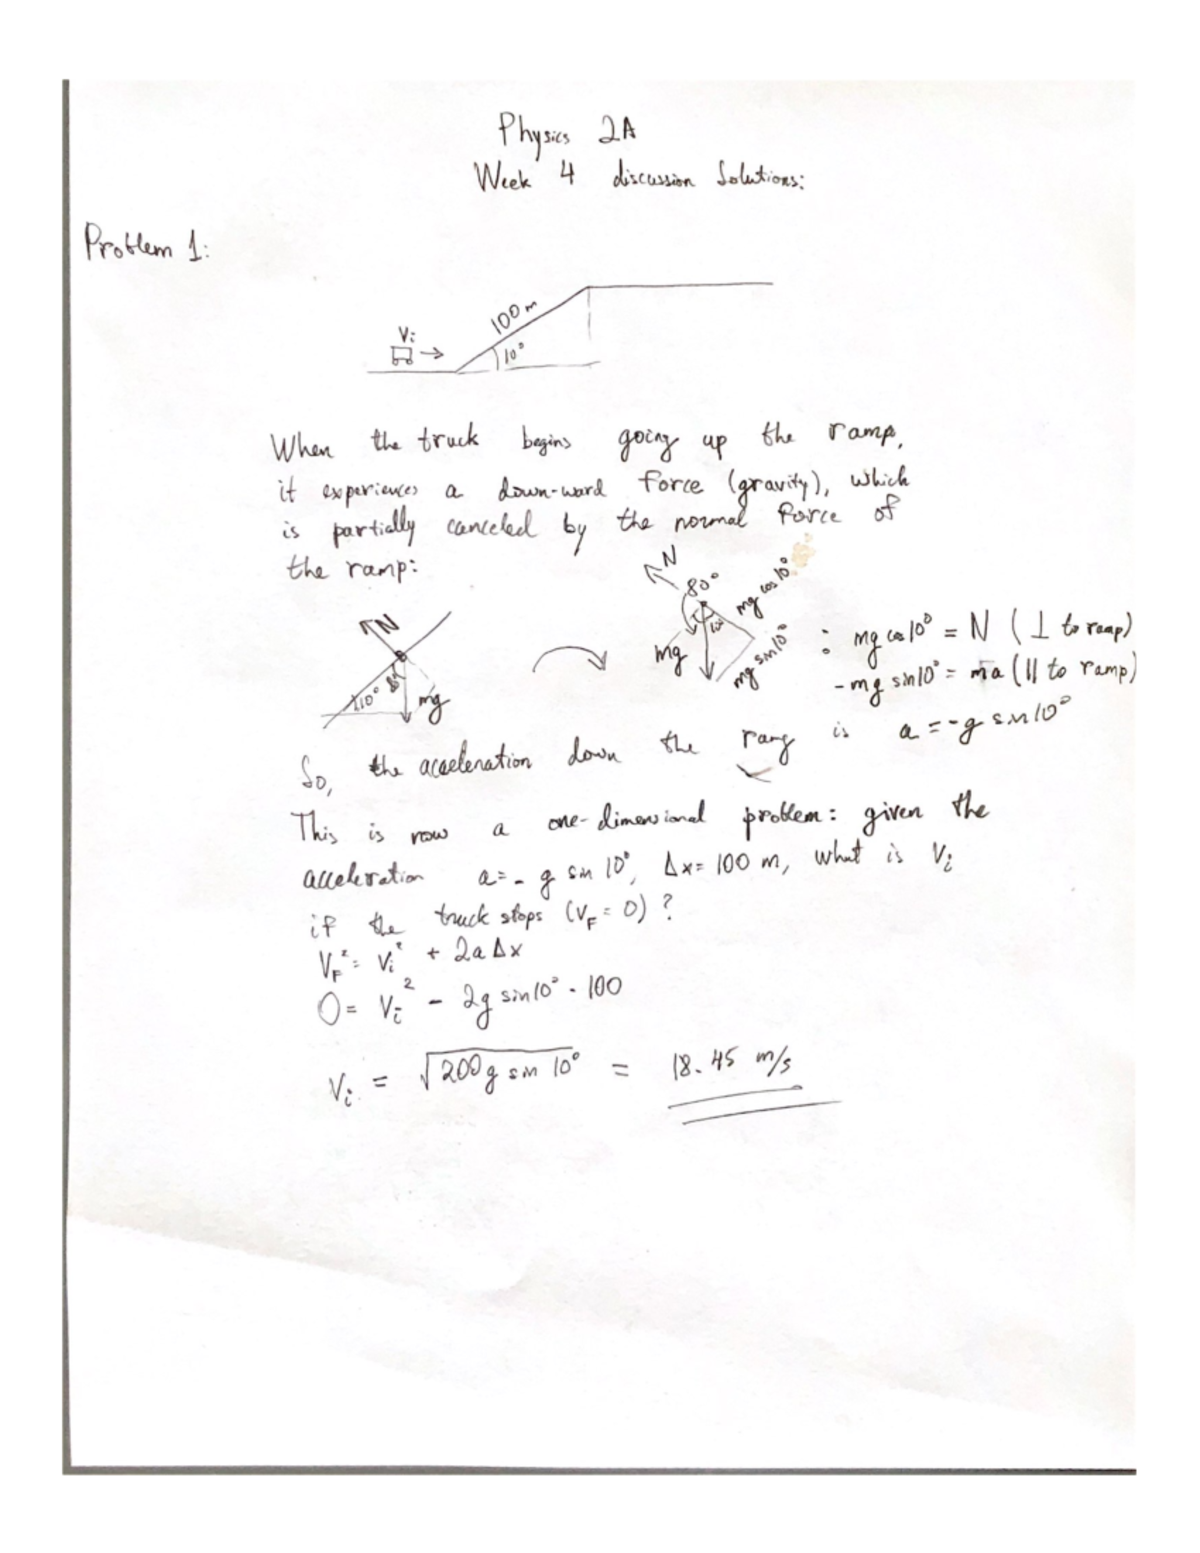 Physics 2A
Week 4 discussion Solutions:
Problem 1:
100 m
Vi
10°
When the truck begins going up the ramp,
it experiences a down-ward force (gravity), which
is partially canceled by the normal force of
the ramp:
N
80°
mg cos 10°
10°
mg
mg sin 10°
∴ mg cos 10° = N (⊥ to ramp)
-mg sin 10° = ma (|| to ramp)
N
10°
mg
So, the acceleration down the ramp is a = -g sin 10°
This is now a one-dimensional problem: given the
acceleration a = - g sin 10°, Δx = 100 m, what is Vi
if the truck stops (VF = 0)?
VF² = Vi² + 2aΔx
0 = Vi² - 2g sin 10° · 100
Vi = √200g sin 10° = 18.45 m/s